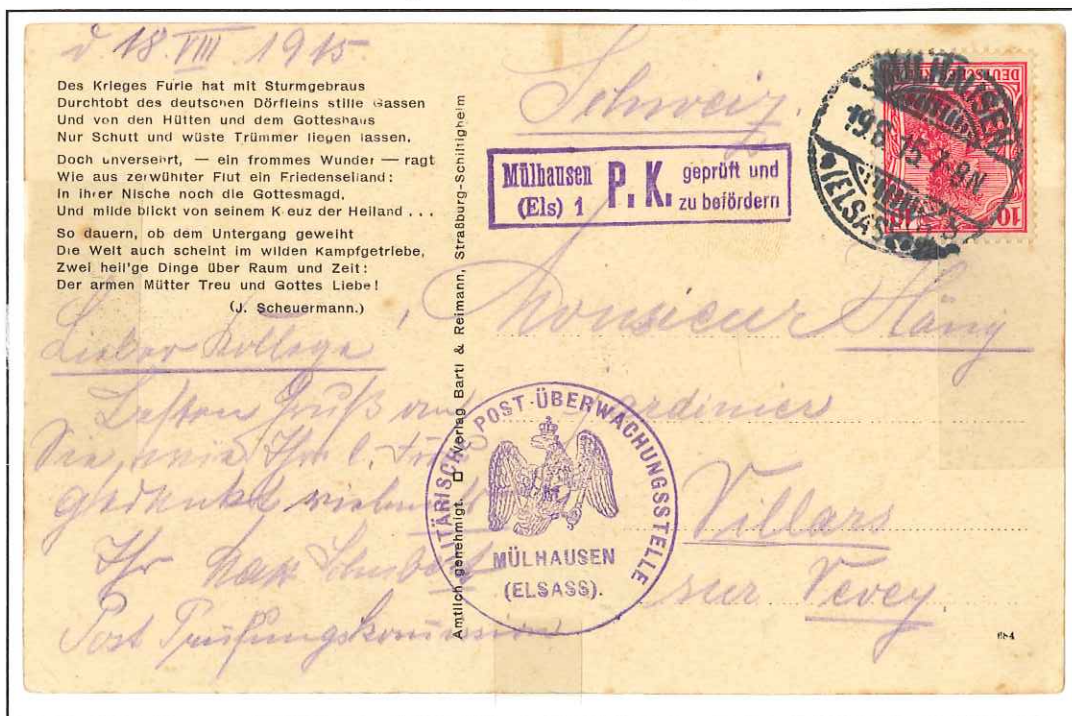 d 18. VIII 1915.
Des Krieges Furie hat mit Sturmgebraus
Durchtobt des deutschen Dörfleins stille Gassen
Und von den Hütten und dem Gotteshaus
Nur Schutt und wüste Trümmer liegen lassen.
Doch unversehrt, — ein frommes Wunder — ragt
Wie aus zerwühlter Flut ein Friedenseiland:
In ihrer Nische noch die Gottesmagd,
Und milde blickt von seinem Kreuz der Heiland . . .
So dauern, ob dem Untergang geweiht
Die Welt auch scheint im wilden Kampfgetriebe,
Zwei heil'ge Dinge über Raum und Zeit:
Der armen Mütter Treu und Gottes Liebe!
(J. Scheuermann.)
Lieber Kollege
Besten Gruß
Sie, wie Ihr l.
gedenkt
Ihr Max Schubert
Post Prüfungskommission
Amtlich genehmigt. Verlag Bartl & Reimann, Straßburg-Schiltigheim
Schweiz.
Mülhausen (Els) 1 P. K. geprüft und zu befördern
MÜLHAUSEN
19.8.15.7-8N
(ELSASS)
DEUTSCHES REICH
10 10
Monsieur Häng
Jardinier
Villars
sur Vevey
MILITÄRISCHE POST-ÜBERWACHUNGSSTELLE
MÜLHAUSEN
(ELSASS).
684